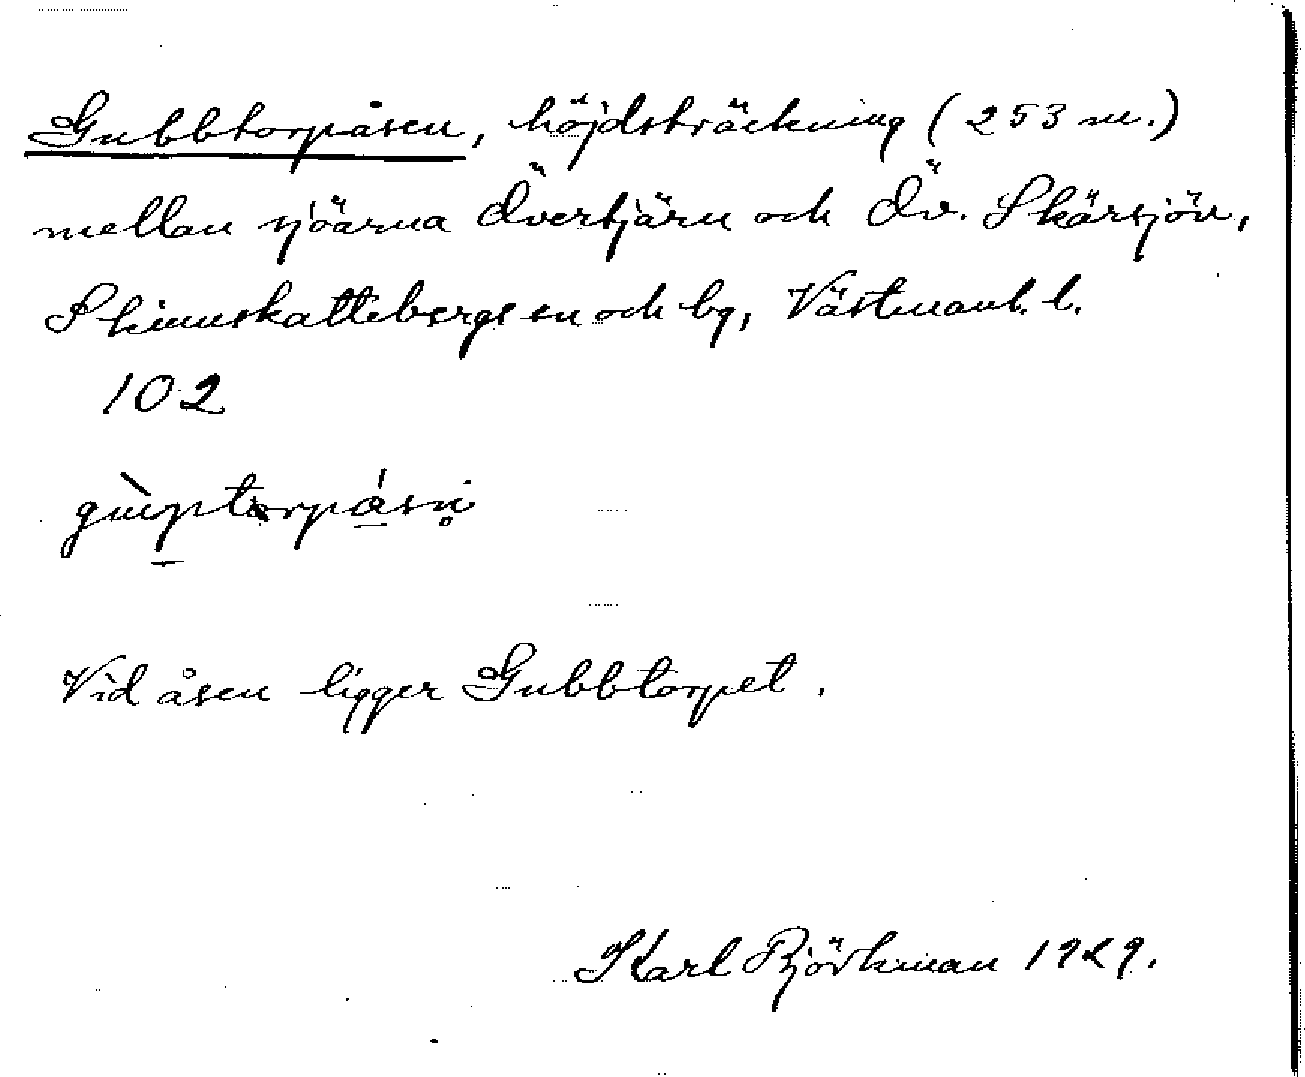 Gubbtorpåsen, höjdsträckning (253 m.)
mellan sjöarna Övertjärn och Öv. Skärsjön,
Skinnskattebergs sn och bg, Västmanl. l.
102
Vid åsen ligger Gubbtorpet.
Karl Björkman 1929.